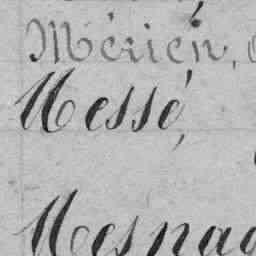 Mérien,
Messé,
Mesnag